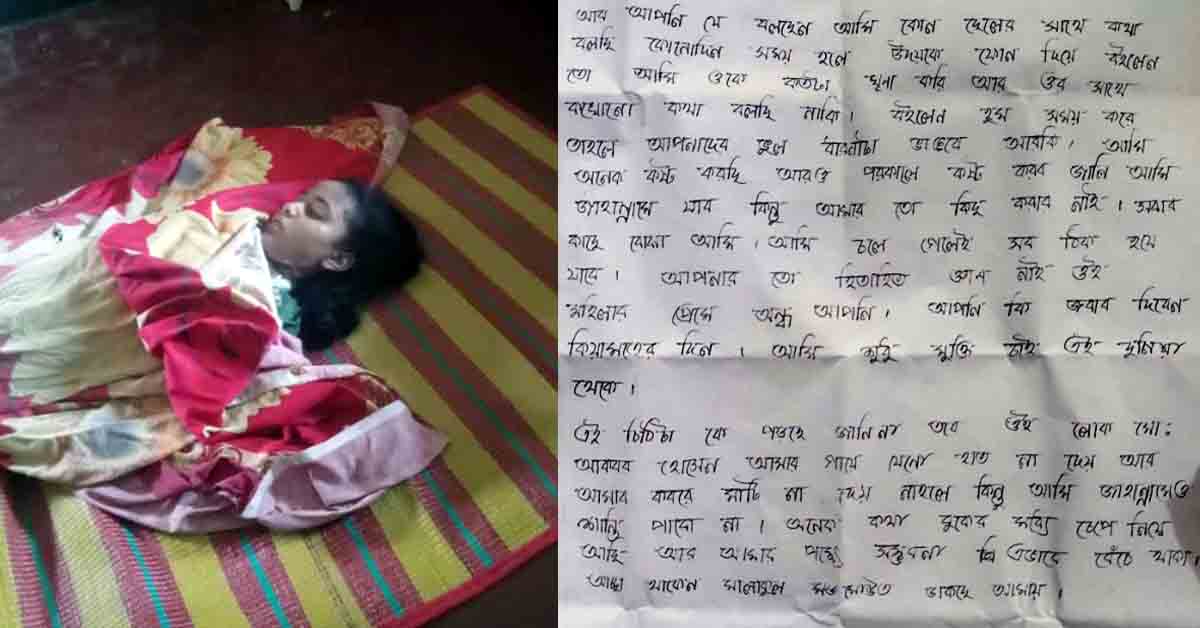 আর আপনি যে বলছেন আমি কোন ছেলের সাথে কথা
বলছি কোনোদিন সময় হলে উদয়কে ফোন দিয়ে কইলেন
তো আমি ওকে কতটা ঘৃনা করি আর ওর সাথে
কখোনো কথা বলছি নাকি। কইলেন সময় করে
তাহলে আপনাদের ভুল ধারনাটা ভাঙবে আরকি। আমি
অনেক কষ্ট করছি আরও পরকালে কষ্ট করব জানি আমি
জাহান্নামে যাব কিন্তু আমার তো কিছু করার নাই। সবার
কাছে বোঝা আমি। আমি চলে গেলেই সব ঠিক হয়ে
যাবে। আপনার তো হিতাহিত জ্ঞান নাই ওই
মহিলার প্রেমে অন্ধ আপনি। আপনি কি জবাব দিবেন
কিয়ামতের দিন। আমি শুধু মুক্তি চাই এই দুনিয়া
থেকে।
এই চিঠিটা কে পড়ছে জানিনা তবে ওই লোক মো:
আকবর হোসেন আমার গায়ে যেনো হাত না দেয় আর
আমার কবরে মাটি না দেয় নাহলে কিন্তু আমি জাহান্নামেও
শান্তি পাবো না। অনেক কথা বুকের মধ্যে চেপে নিয়ে
আছি আর আমার পক্ষে সম্ভবনা এভাবে বেঁচে থাকা।
থাকেন ডাকছে আমায়।